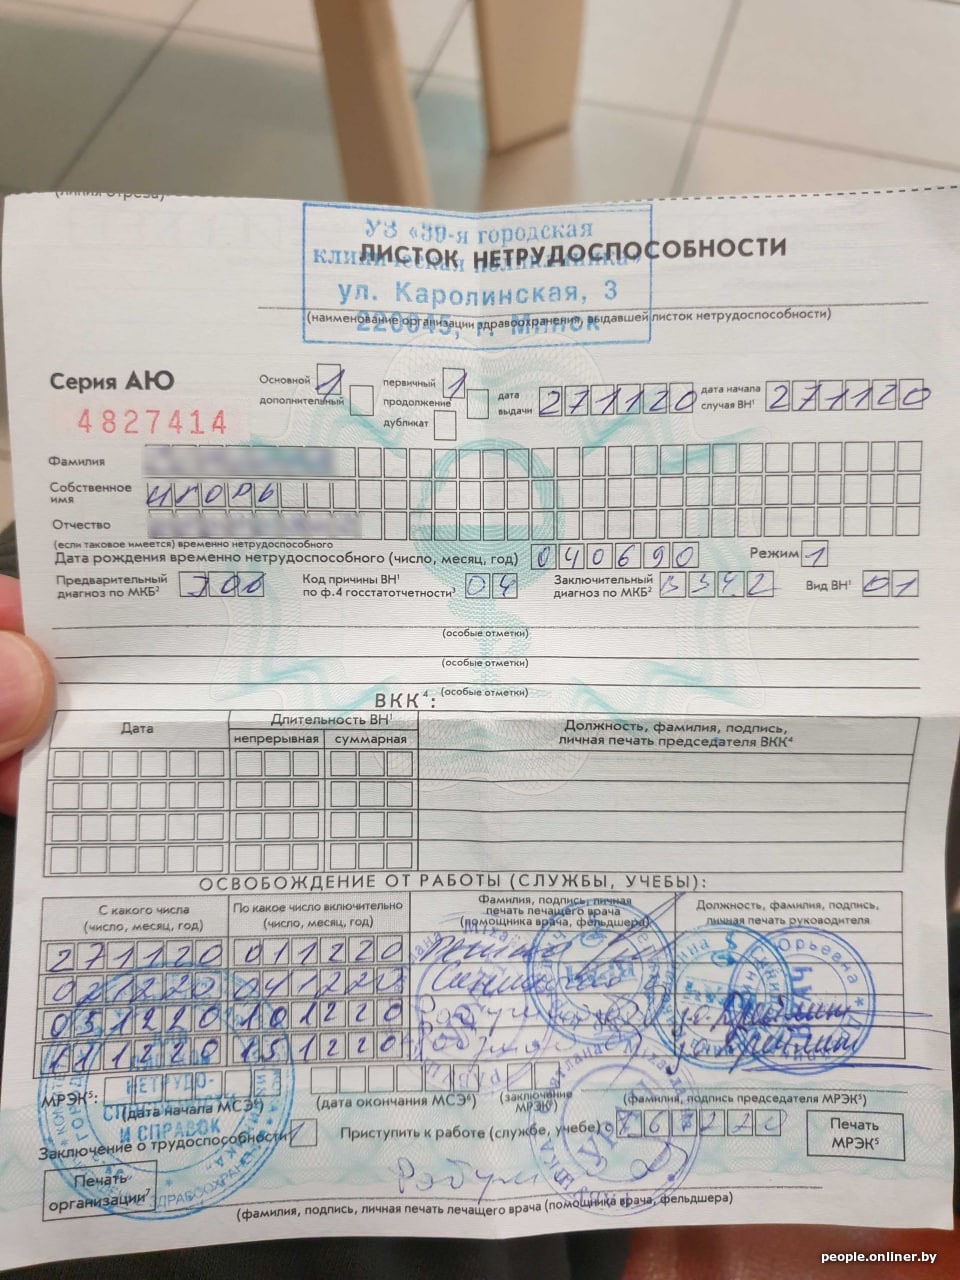 (линия отреза)
УЗ «39-я городская
клиническая поликлиника»
ул. Каролинская, 3
220045, г. Минск
ЛИСТОК НЕТРУДОСПОСОБНОСТИ
(наименование организации здравоохранения, выдавшей листок нетрудоспособности)
Серия АЮ
4827414
Основной 1 первичный 1 дата выдачи 271120 дата начала случая ВН¹ 271120
дополнительный продолжение
дубликат
Фамилия
Собственное имя игорь
Отчество
(если таковое имеется) временно нетрудоспособного
Дата рождения временно нетрудоспособного (число, месяц, год) 040690 Режим 1
Предварительный диагноз по МКБ² J06 Код причины ВН¹ по ф.4 госстатотчетности³ 04 Заключительный диагноз по МКБ² B342 Вид ВН¹ 01
(особые отметки)
(особые отметки)
(особые отметки)
ВКК⁴:
Дата Длительность ВН¹ Должность, фамилия, подпись, личная печать председателя ВКК⁴
непрерывная суммарная
ОСВОБОЖДЕНИЕ ОТ РАБОТЫ (СЛУЖБЫ, УЧЕБЫ):
С какого числа (число, месяц, год) По какое число включительно (число, месяц, год) Фамилия, подпись, личная печать лечащего врача (помощника врача, фельдшера) Должность, фамилия, подпись, личная печать руководителя
271120 011220
021220 041220
051220 101220
111220 151220
МРЭК⁵: (дата начала МСЭ⁶) (дата окончания МСЭ⁶) (заключение МРЭК⁵) (фамилия, подпись председателя МРЭК⁵)
НЕТРУДО-
СПОСОБНОСТИ
И СПРАВОК
Юрьевна
Заключение о трудоспособности 1 Приступить к работе (службе, учебе) с 161220 Печать МРЭК⁵
Печать организации⁷
(фамилия, подпись, личная печать лечащего врача (помощника врача, фельдшера)
people.onliner.by